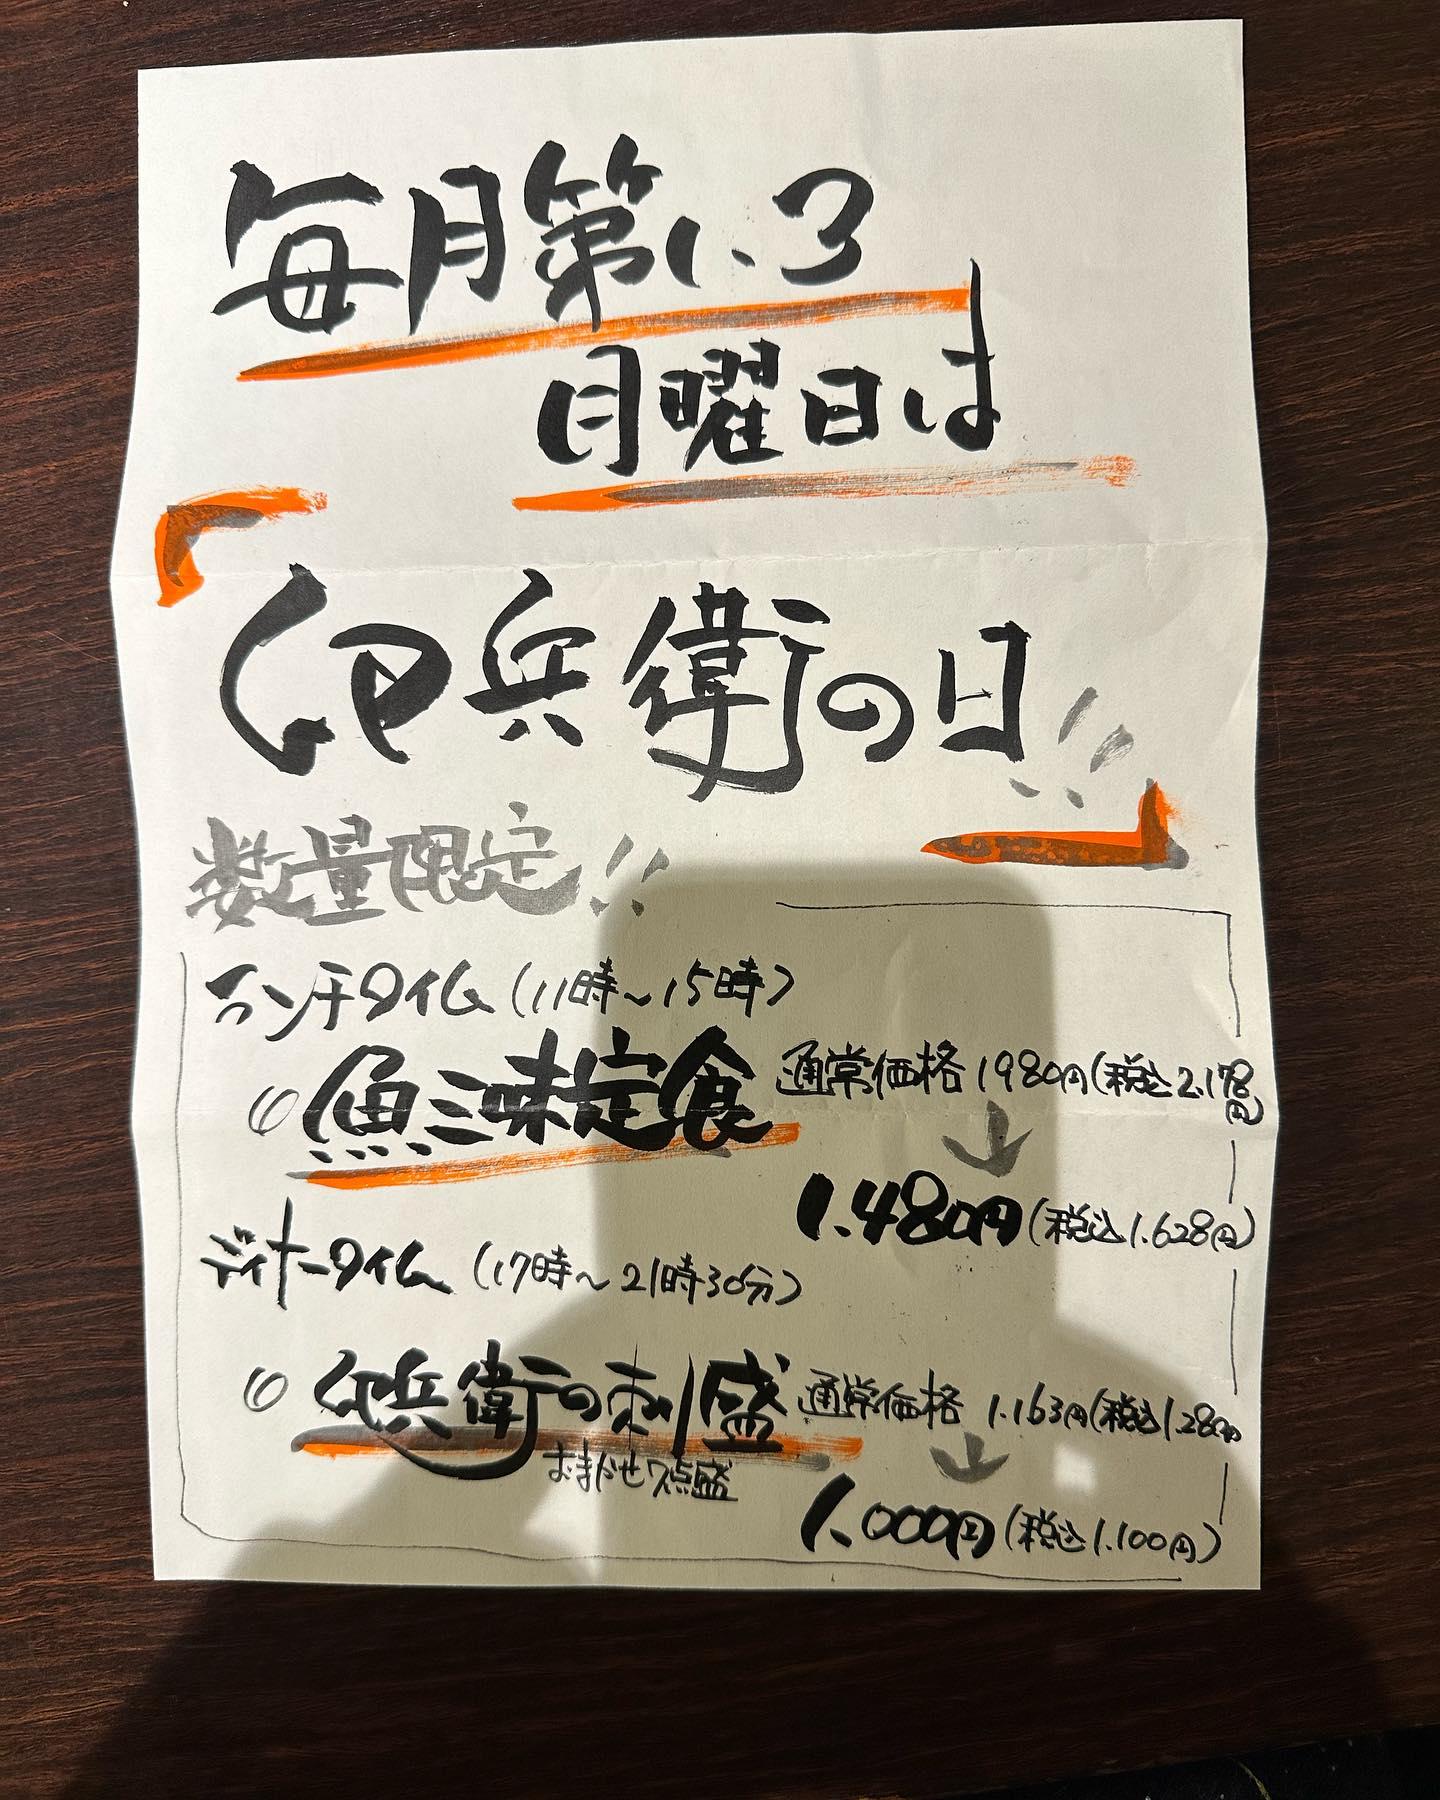 毎月第1.3
月曜日は
「伊兵衛の日!!」
数量限定!!
ランチタイム(11時〜15時)
◎魚三味定食 通常価格1980円(税込2.178円)
↓
1.480円(税込1.628円)
ディナータイム(17時〜21時30分)
◎伊兵衛の刺盛 通常価格1.163円(税込1.280円
おまかせ7点盛
↓
1.000円(税込1.100円)